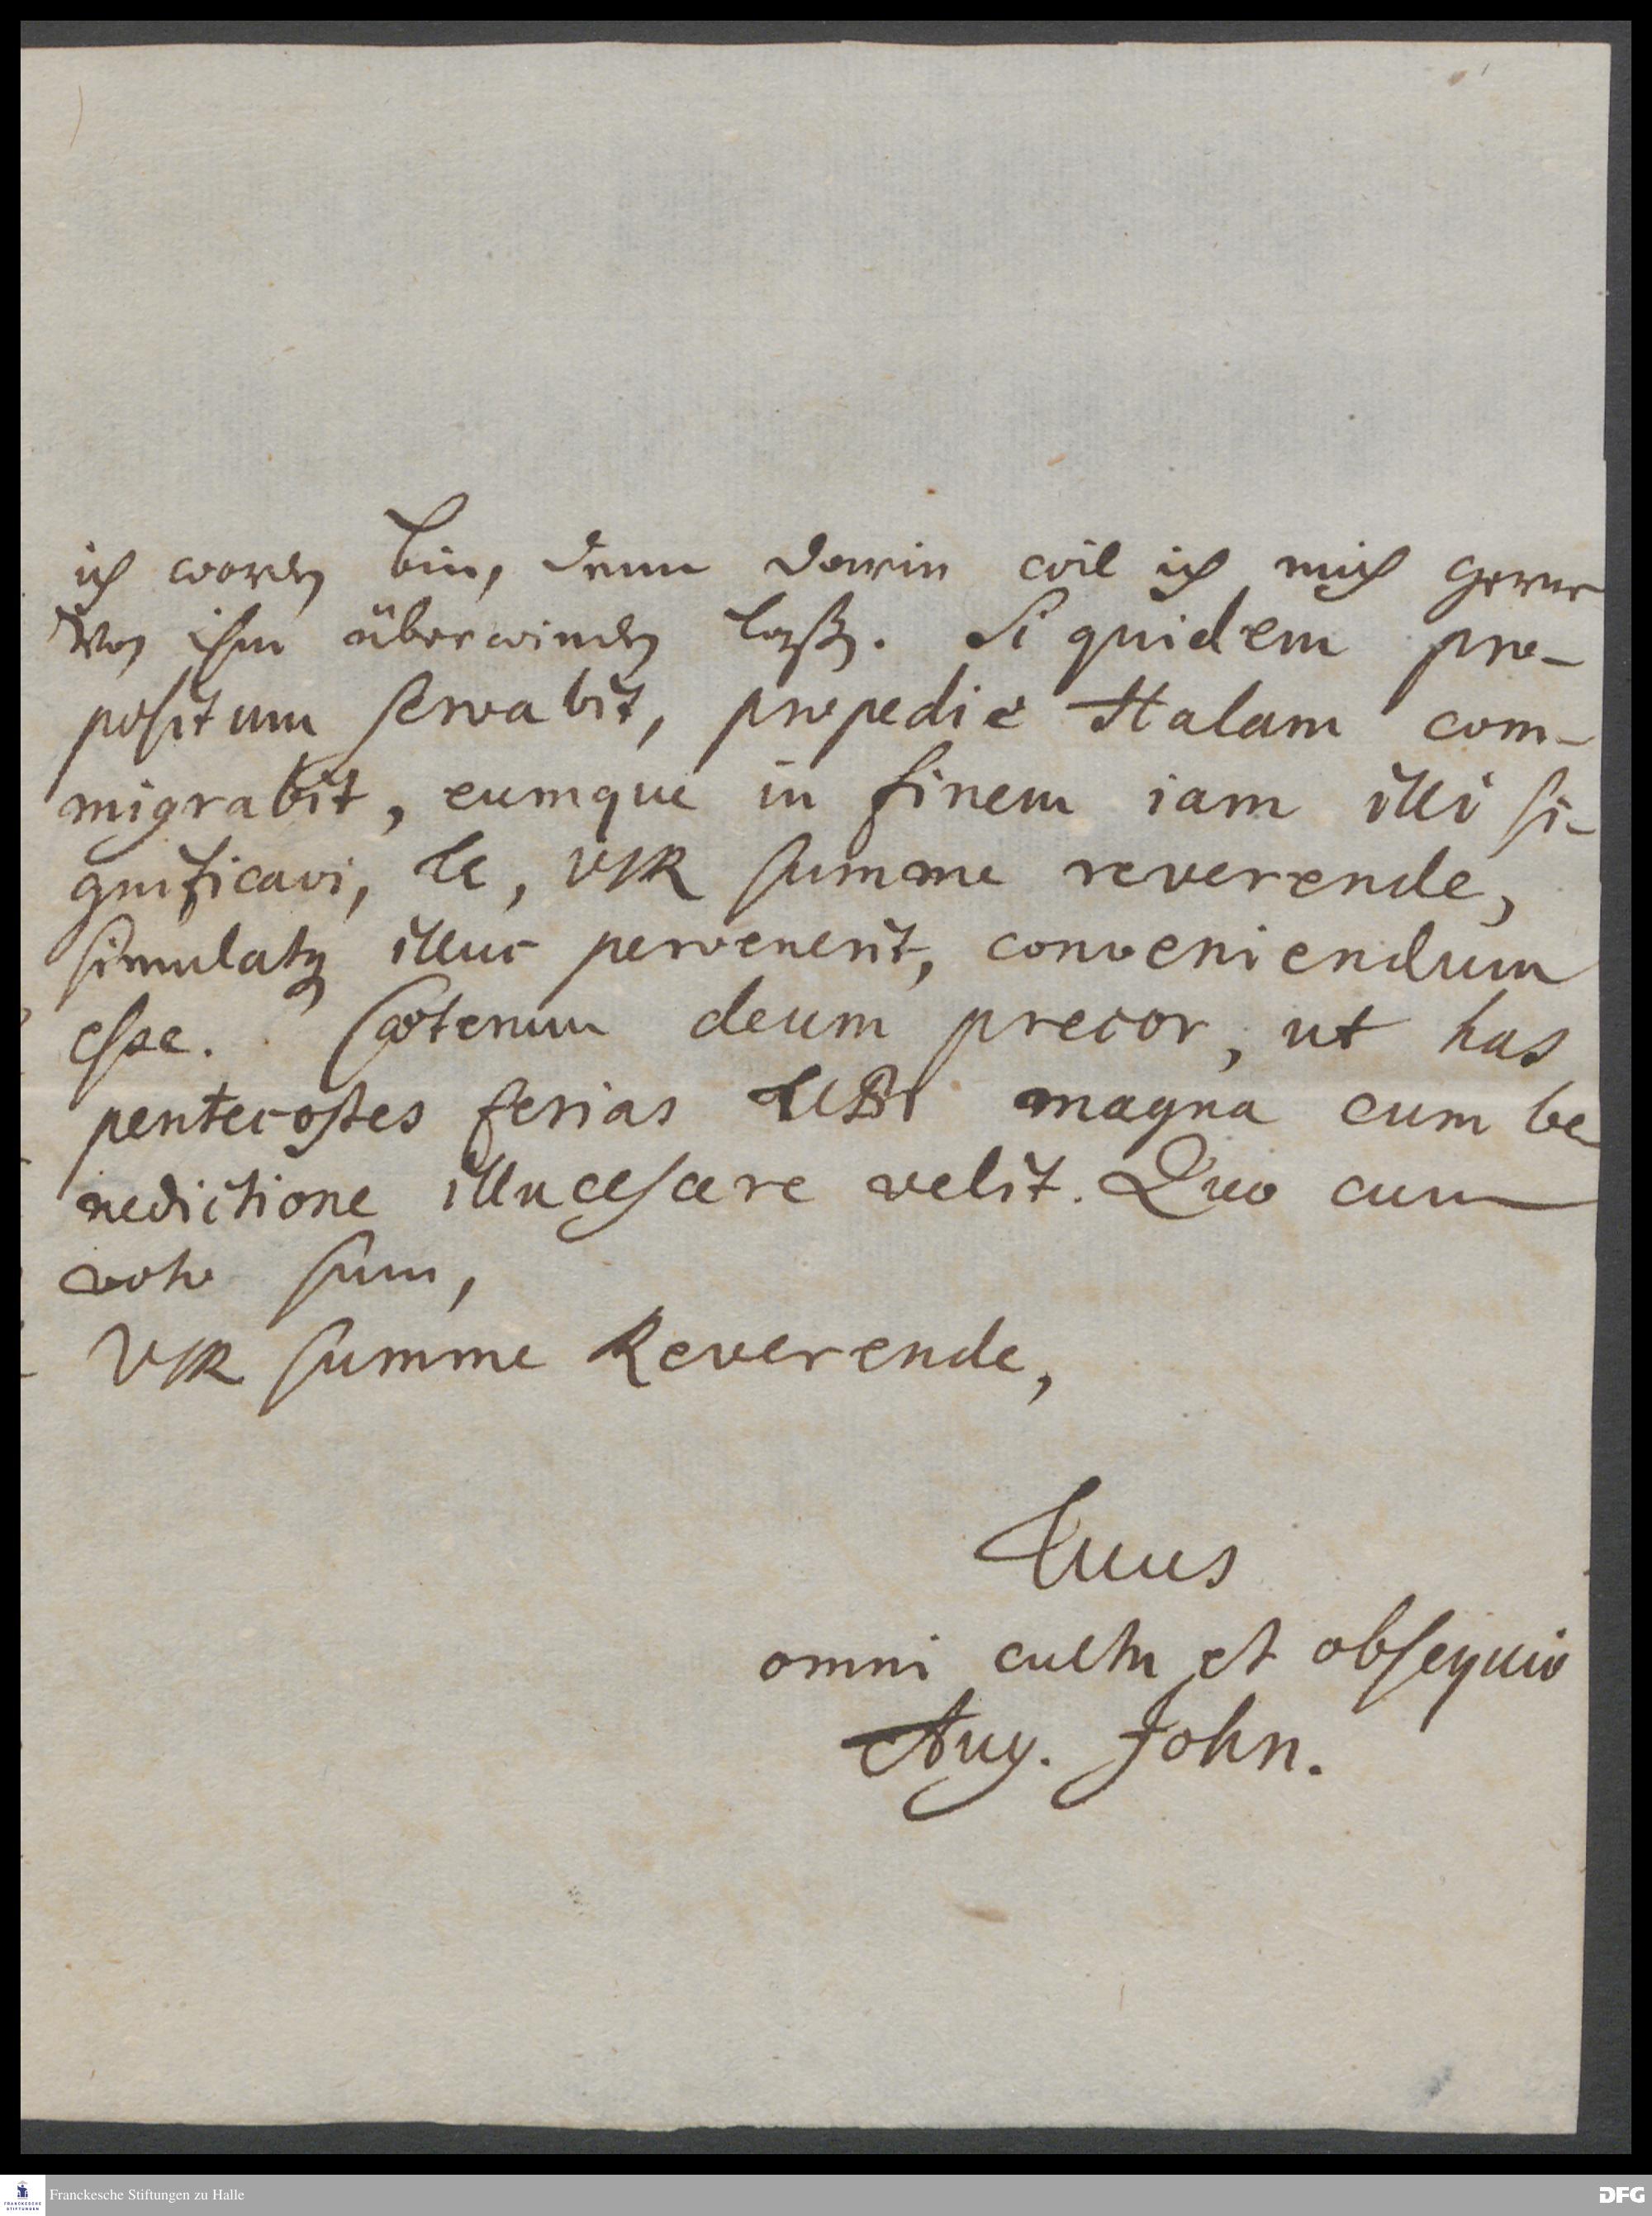 ich worden bin, denn darin wil ich mich gerne
von ihm überwinden laßen. Si quidem pro-
positum servabit, propedie Halam com-
migrabit, eumque in finem iam illi si-
gnificavi, te, VIR summe reverende,
simulatq illuc pervenerit, conveniendum
esse. Cæterum deum precor, ut has
pentecostes ferias TIBI magna cum be
nedictione illucescere velit. Quo cum
voto sum,
VIR summe Reverende,
Tuus
omni cultu et obsequio
Aug. John.
Franckesche Stiftungen zu Halle
FRANCKESCHE
STIFTUNGEN
DFG